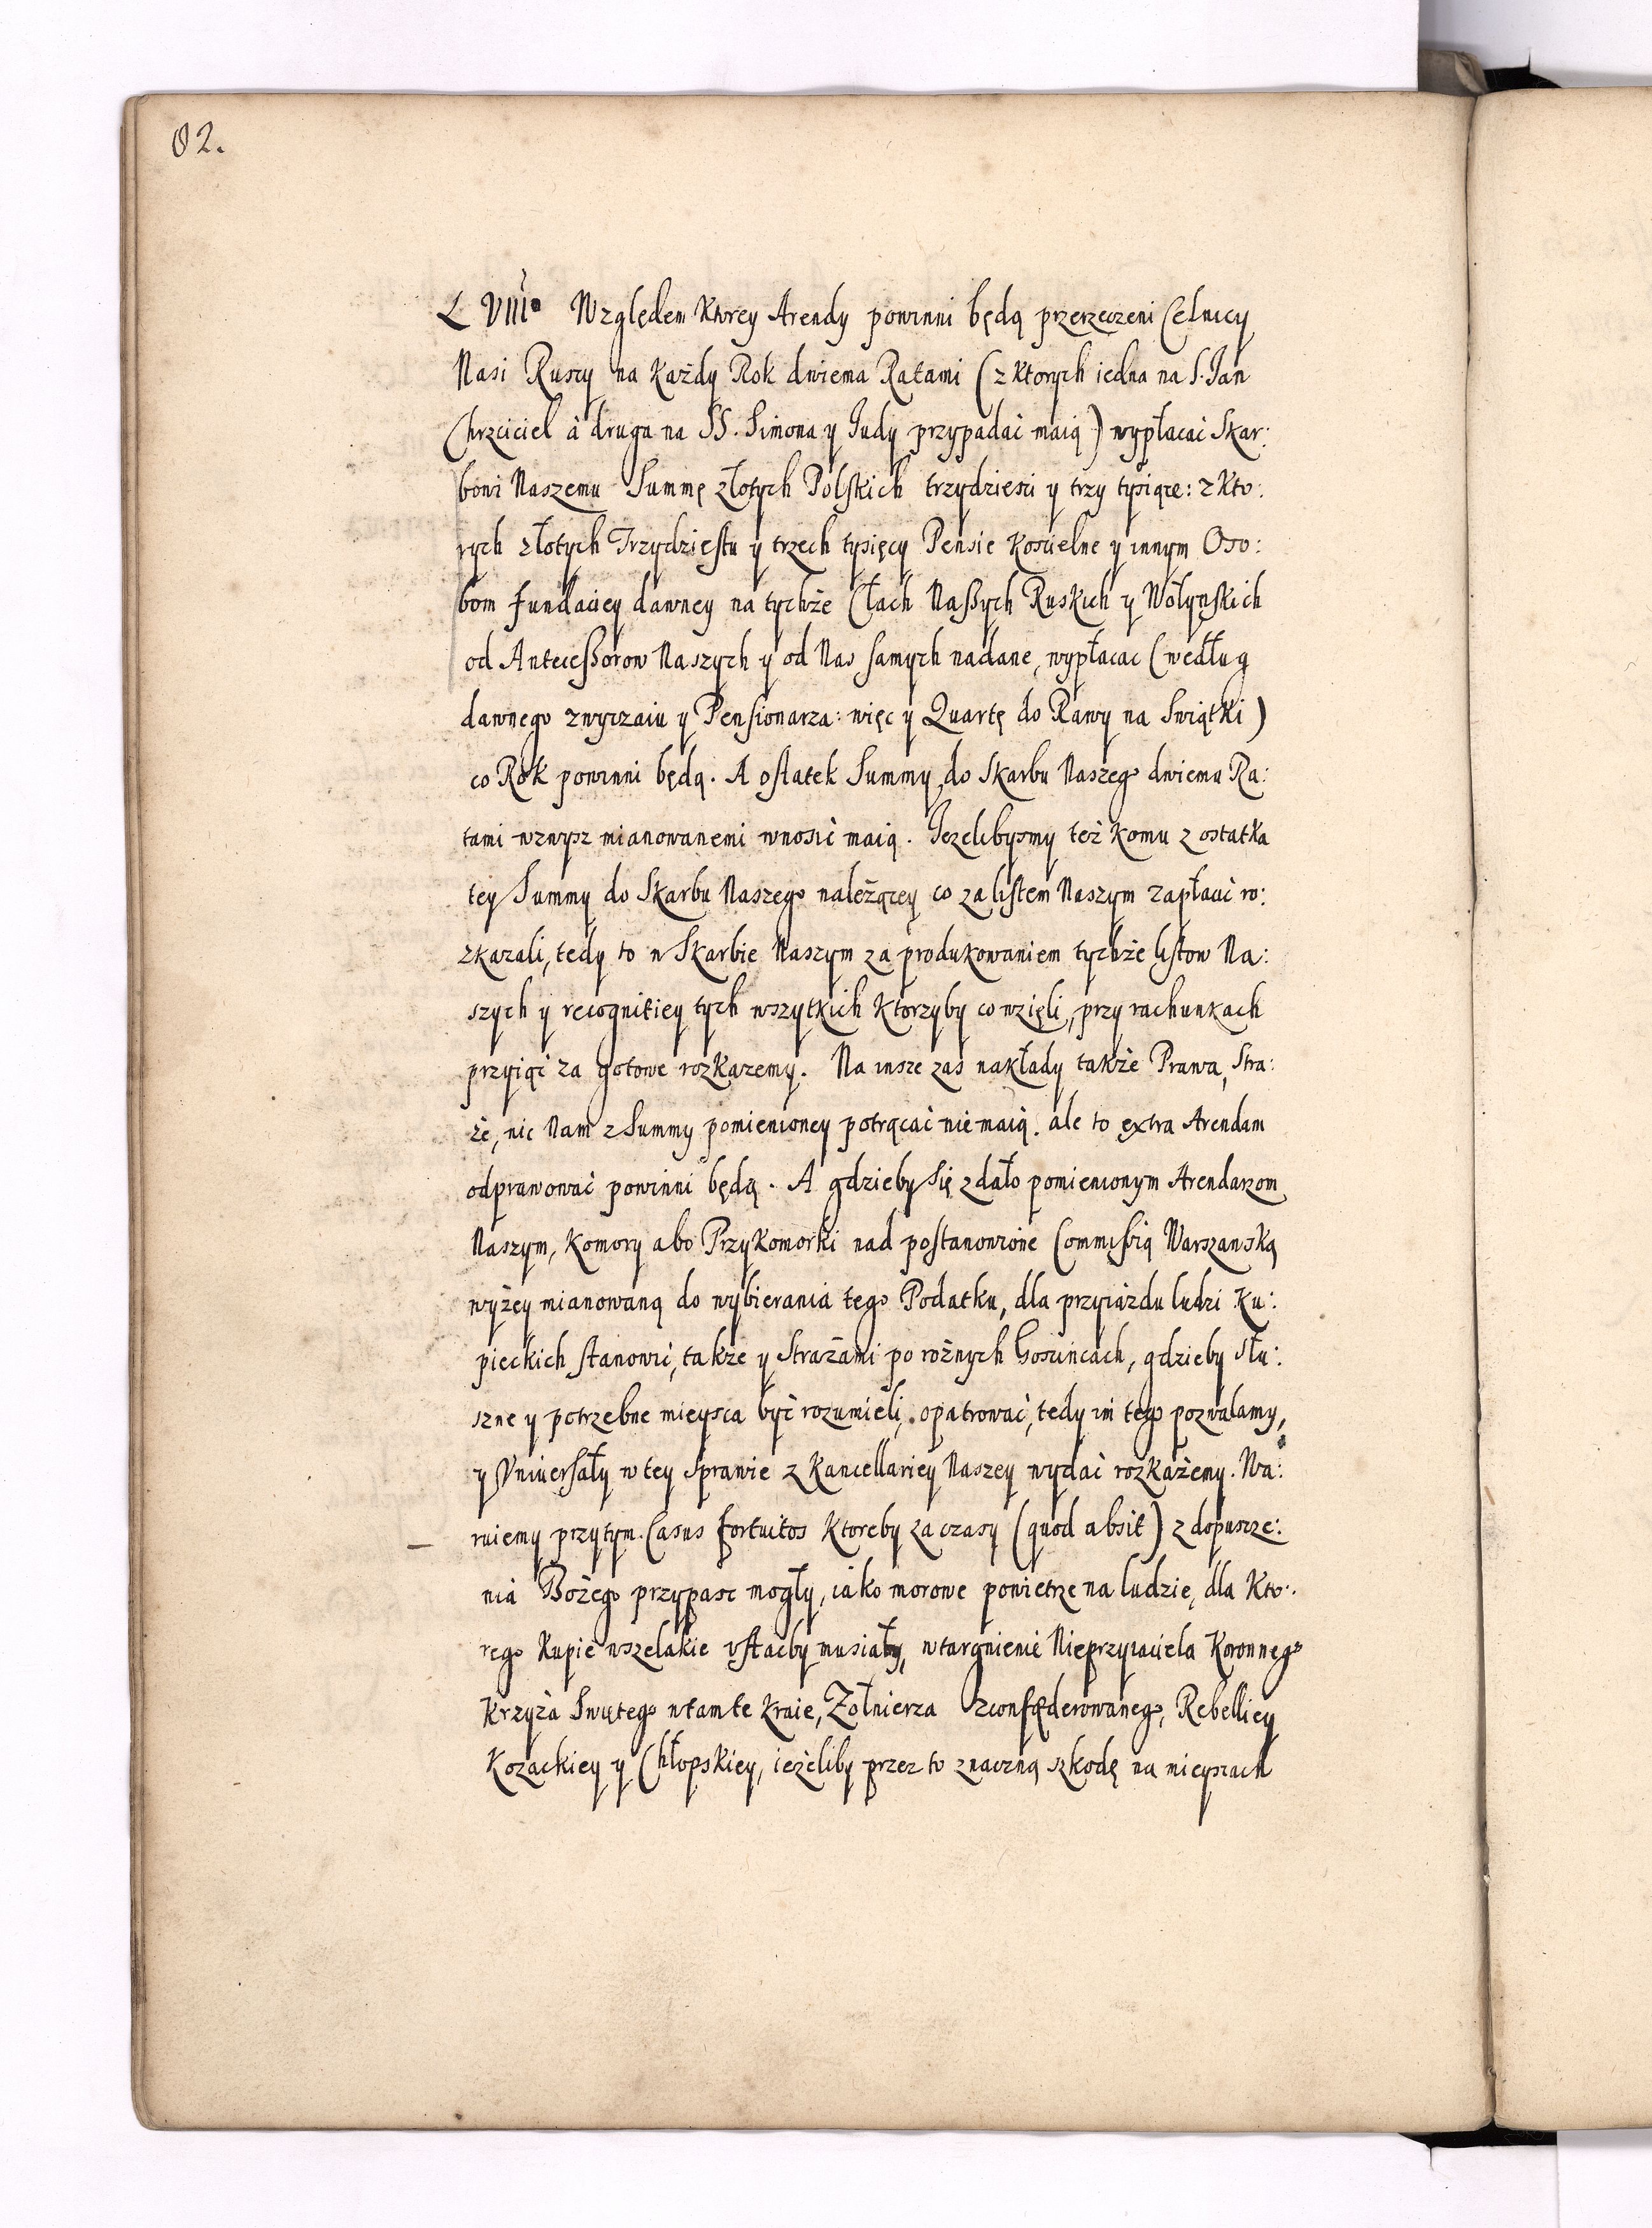 82.
L VIIIo Względem Ktorey Arendy powinni będą przerzeczeni Celnicy
Nasi Ruscy na Każdy Rok dwiema Ratami (z Ktorych iedna na S. Jan
Chrzciciel à druga na SS. Simona y Judy przypadać maią) wypłacać Skar:
bowi Naszemu Summę złotych Polskich trzydzieści y trzy tysiące: z kto:
rych złotych Trzydziestu y trzech tysięcy Pensie Kościelne y innym Oso:
bom fundaciey dawney na tychże Cłach Naszych Ruskich y Wołyńskich
od Antecessorow Naszych y od Nas samych nadane, wypłacac (według
dawnego zwyczaiu y Pensionarza: więc y Quartę do Rawy na Swiątki)
co Rok powinni będą. A ostatek Summy, do Skarbu Naszego dwiema Ra:
tami wzwysz mianowanemi wnosić maią. Jezelibysmy też Komu z ostatka
tey Summy do Skarbu Naszego należącey co za listem Naszym zapłacić ro:
zkazali, tedy to w Skarbie Naszym za produkowaniem tychże listow Na:
szych y recognitiey tych wszytkich Ktorzyby co wzięli, przy rachunkach
przyiąć za gotowe rozkazemy. Na insze zas nakłady także Prawa, Stra:
że, nic Nam z Summy pomienioney potrącać nie maią. ale to extra Arendam
odprawować powinni będą. A gdzieby się zdało pomienionym Arendarzom
Naszym, Komory abo Przykomorki nad postanowione Commissią Warszawską
wyżey mianowaną do wybierania tego Podatku, dla przyiazdu ludzi Ku:
pieckich stanowić, także y Strażami po rożnych Gościncach, gdzieby słu:
szne y potrzebne mieysca być rozumieli, opatrować, tedy im tego pozwalamy,
y Vniuersały w tey sprawie z Kancellariey Naszey wydać rozkażemy. Wa:
ruiemy przytym. Casus fortuitos Ktoreby za czasy (quod absit) z dopuscze:
nia Bożego przypasc mogły, iako morowe powietrze na ludzie, dla Kto:
rego Kupie wszelakie vstacby musiały, wtargnienie Nieprzyiaciela Koronnego
Krzyża Swiętego w tamte kraie, Zołnierza zconfæderowanego, Rebelliey
Kozackiey y Chłopskiey, ieżeliby przez to znaczną szkodę na mieyscach